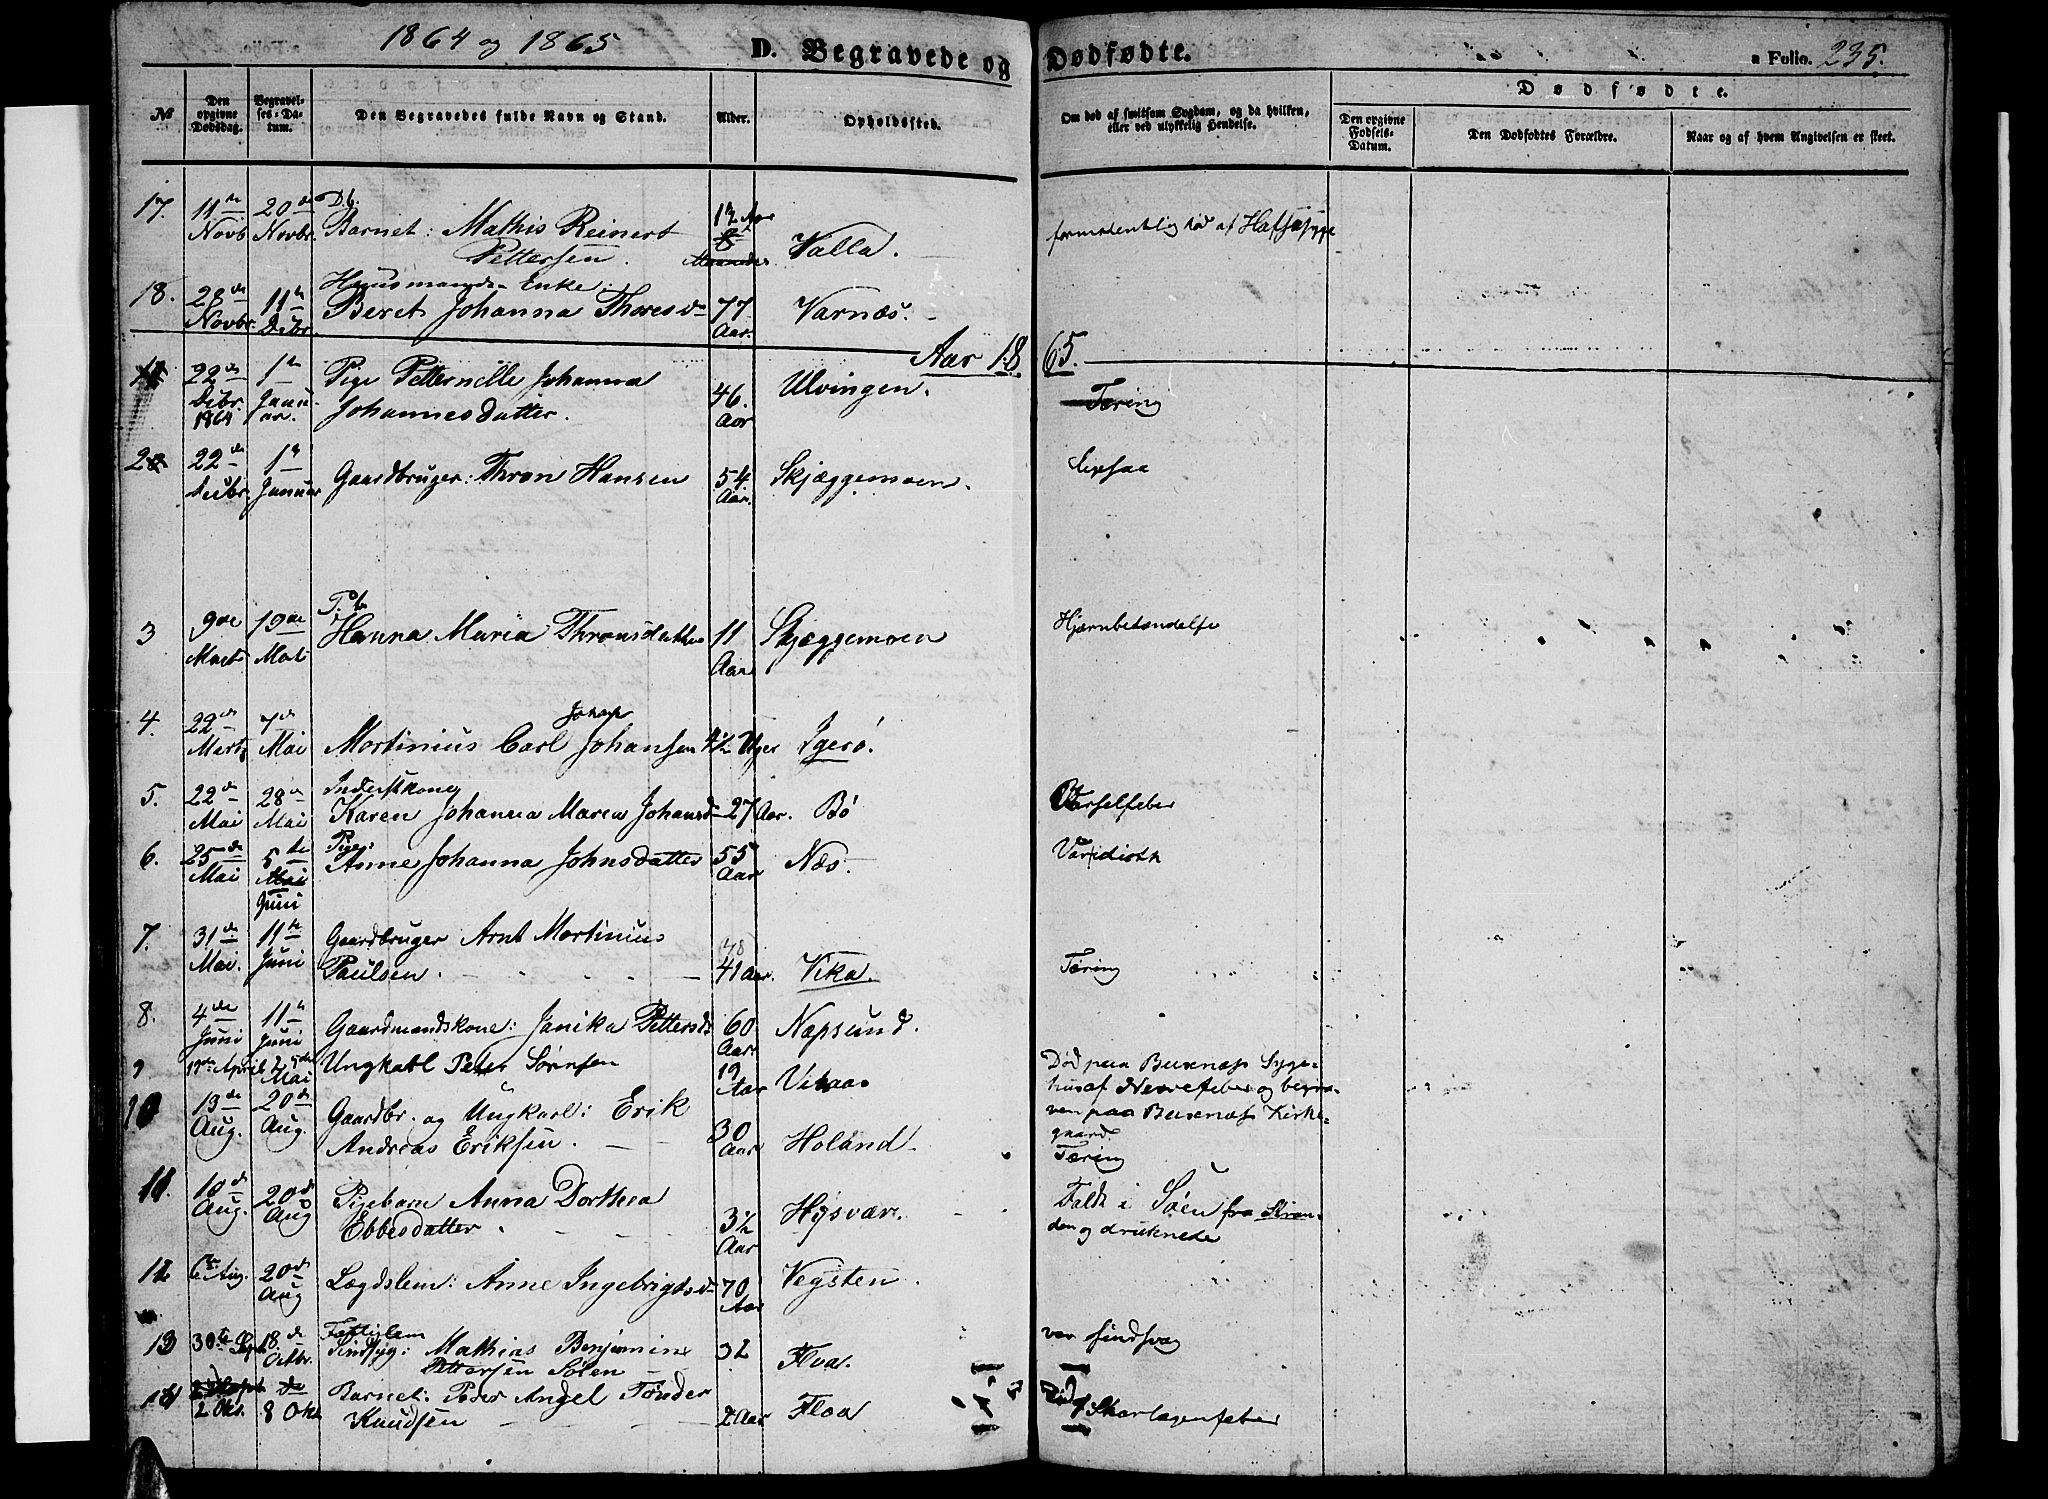 1864 og 1865 D. Begravede og Dødfødte. a Folio. 235.
No Den opgivne Dødsdag. Begravelses-Datum. Den Begravedes fulde Navn og Stand. Alder. Opholdssted. Om død af smitsom Sygdom, og da hvilken, eller ved ulykkelig Hendelse. Dødfødte.
Den opgivne Fødsels-Datum. Den Dødfødtes Forældre. Naar og af hvem Angivelsen er skeet.
17. 11te Novb 20de Novbr. D.b. Barnet: Mathis Reinert 12 Aar
Pettersen. Valla. formodentlig død af Halssyge
18. 28de Novbr. 11te Debr. Huusmands-Enke:
Beret Johanna Thoresd- 77 Aar. Varnæs.
Aar 1865.
22de Debr. 1864 1te Januar. Pige Petternille Johanna
Johannesdatter. 46. Aar Ulvingen. Tæring
2 22de Decbr. 1te Januar Gaardbruger: Thron Hansen 54 Aar. Skjæggemoen.
3 9de Marts 19de Mai P.b.
Hanna Maria Thronsdatter 11 Aar Skjæggemoen Hjernbetændelse
4. 22de Marts 7de Mai Johan
Mortinius Carl Johansen 4½ Uger Igerø.
5. 22de Mai 28de Mai Inderstkone
Karen Johanna Maria Johansd- 27 Aar. Bø Barselfeber
6. 25de Mai 5te Mai Juni Pige:
Anne Johanna Johnsdatter 55 Aar Næs.
7. 31de Mai. 11te Juni Gaardbruger Arnt Mortinius
Paulsen. 41 Aar. Vika. Tæring
8. 4de Juni 11te Juni Gaardmandskone: Janika Pettersd- 60 Aar. Napsund.
9 April Mai Ungkarl Peter Sørnsen 19 Aar Død paa Buxnæs Syge-
hus af Nervefeber og begra-
ven paa Buxnæs Kirke-
gaard.
10 13de Aug. 20de Aug. Gaardbr. og Ungkarl: Erik
Andreas Eriksen. 30 Aar Holand. Tæring
11. 10de Aug. 20de Aug Pigebarn Anna Dorthea
Ebbesdatter 3½ Aar Hysvær. Faldt i Søen fra Stran-
den og druknede
12 6te Aug. 20de Aug Lægdslem: Anne Ingebrigtsd- 70 Aar Vegsten.
13 30te Sept. 18de Octbr. Fattiglem
Sindsyg: Mathias Benjamin 32 Floa. var sindsvag
Pettersen Solem
14 2 Okt. 8 Okt Barnet: Peder Angel Tønder
Knudsen 2 Aar Floa Død af Skarlagensfeber